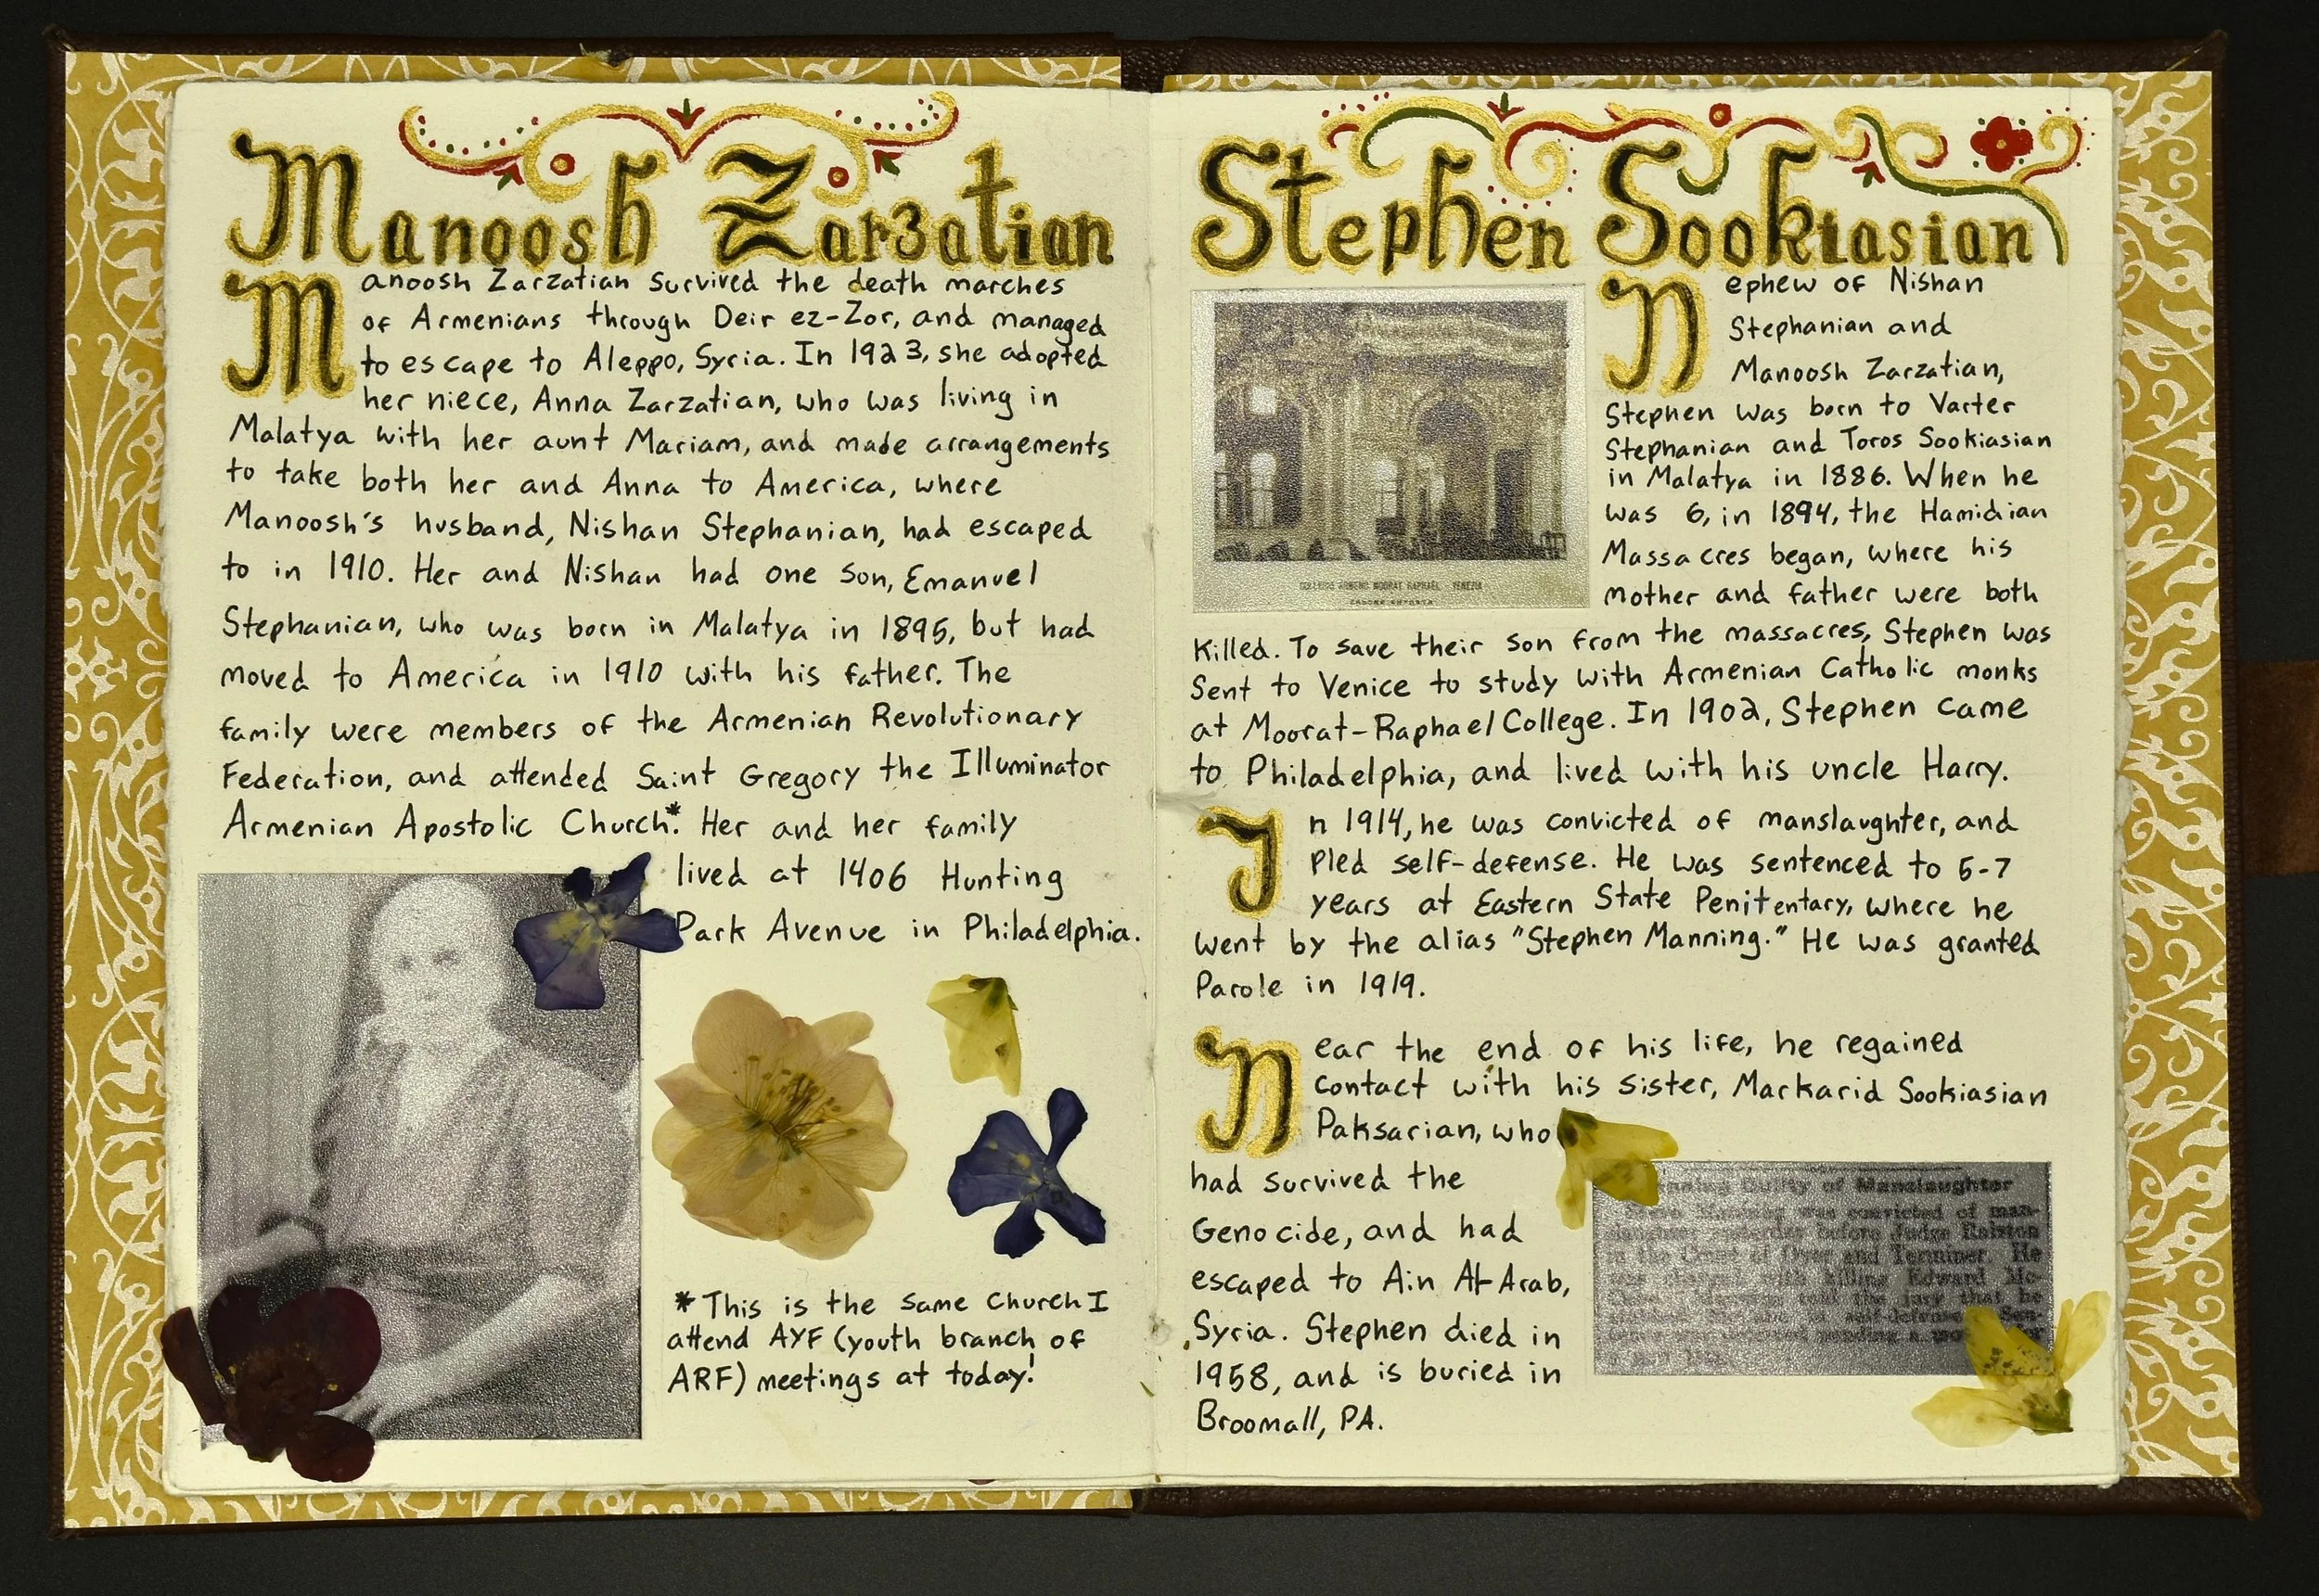 Manoosh Zarzatian
Manoosh Zarzatian survived the death marches
of Armenians through Deir ez-Zor, and managed
to escape to Aleppo, Syria. In 1923, she adopted
her niece, Anna Zarzatian, who was living in
Malatya with her aunt Mariam, and made arrangements
to take both her and Anna to America, where
Manoosh's husband, Nishan Stephanian, had escaped
to in 1910. Her and Nishan had one son, Emanuel
Stephanian, who was born in Malatya in 1895, but had
moved to America in 1910 with his father. The
family were members of the Armenian Revolutionary
Federation, and attended Saint Gregory the Illuminator
Armenian Apostolic Church.* Her and her family
lived at 1406 Hunting
Park Avenue in Philadelphia.
*This is the same church I
attend AYF (youth branch of
ARF) meetings at today!
Stephen Sookiasian
Nephew of Nishan
Stephanian and
Manoosh Zarzatian,
Stephen was born to Varter
Stephanian and Toros Sookiasian
in Malatya in 1886. When he
was 6, in 1894, the Hamidian
Massacres began, where his
mother and father were both
killed. To save their son from the massacres, Stephen was
sent to Venice to study with Armenian Catholic monks
at Moorat-Raphael College. In 1902, Stephen came
to Philadelphia, and lived with his uncle Harry.
COLLEGIO ARMENO MOORAT RAPHAEL - VENEZIA
In 1914, he was convicted of manslaughter, and
pled self-defense. He was sentenced to 5-7
years at Eastern State Penitentary, where he
went by the alias "Stephen Manning." He was granted
Parole in 1919.
Near the end of his life, he regained
contact with his sister, Markarid Sookiasian
Paksarian, who
had survived the
Genocide, and had
escaped to Ain Al-Arab,
Syria. Stephen died in
1958, and is buried in
Broomall, PA.
Guilty of Manslaughter
was convicted of man-
slaughter yesterday before Judge Ralston
in the Court of Oyer and Terminer. He
was charged with killing Edward Mc-
told the jury that he
self-defense. Sen-
pending a